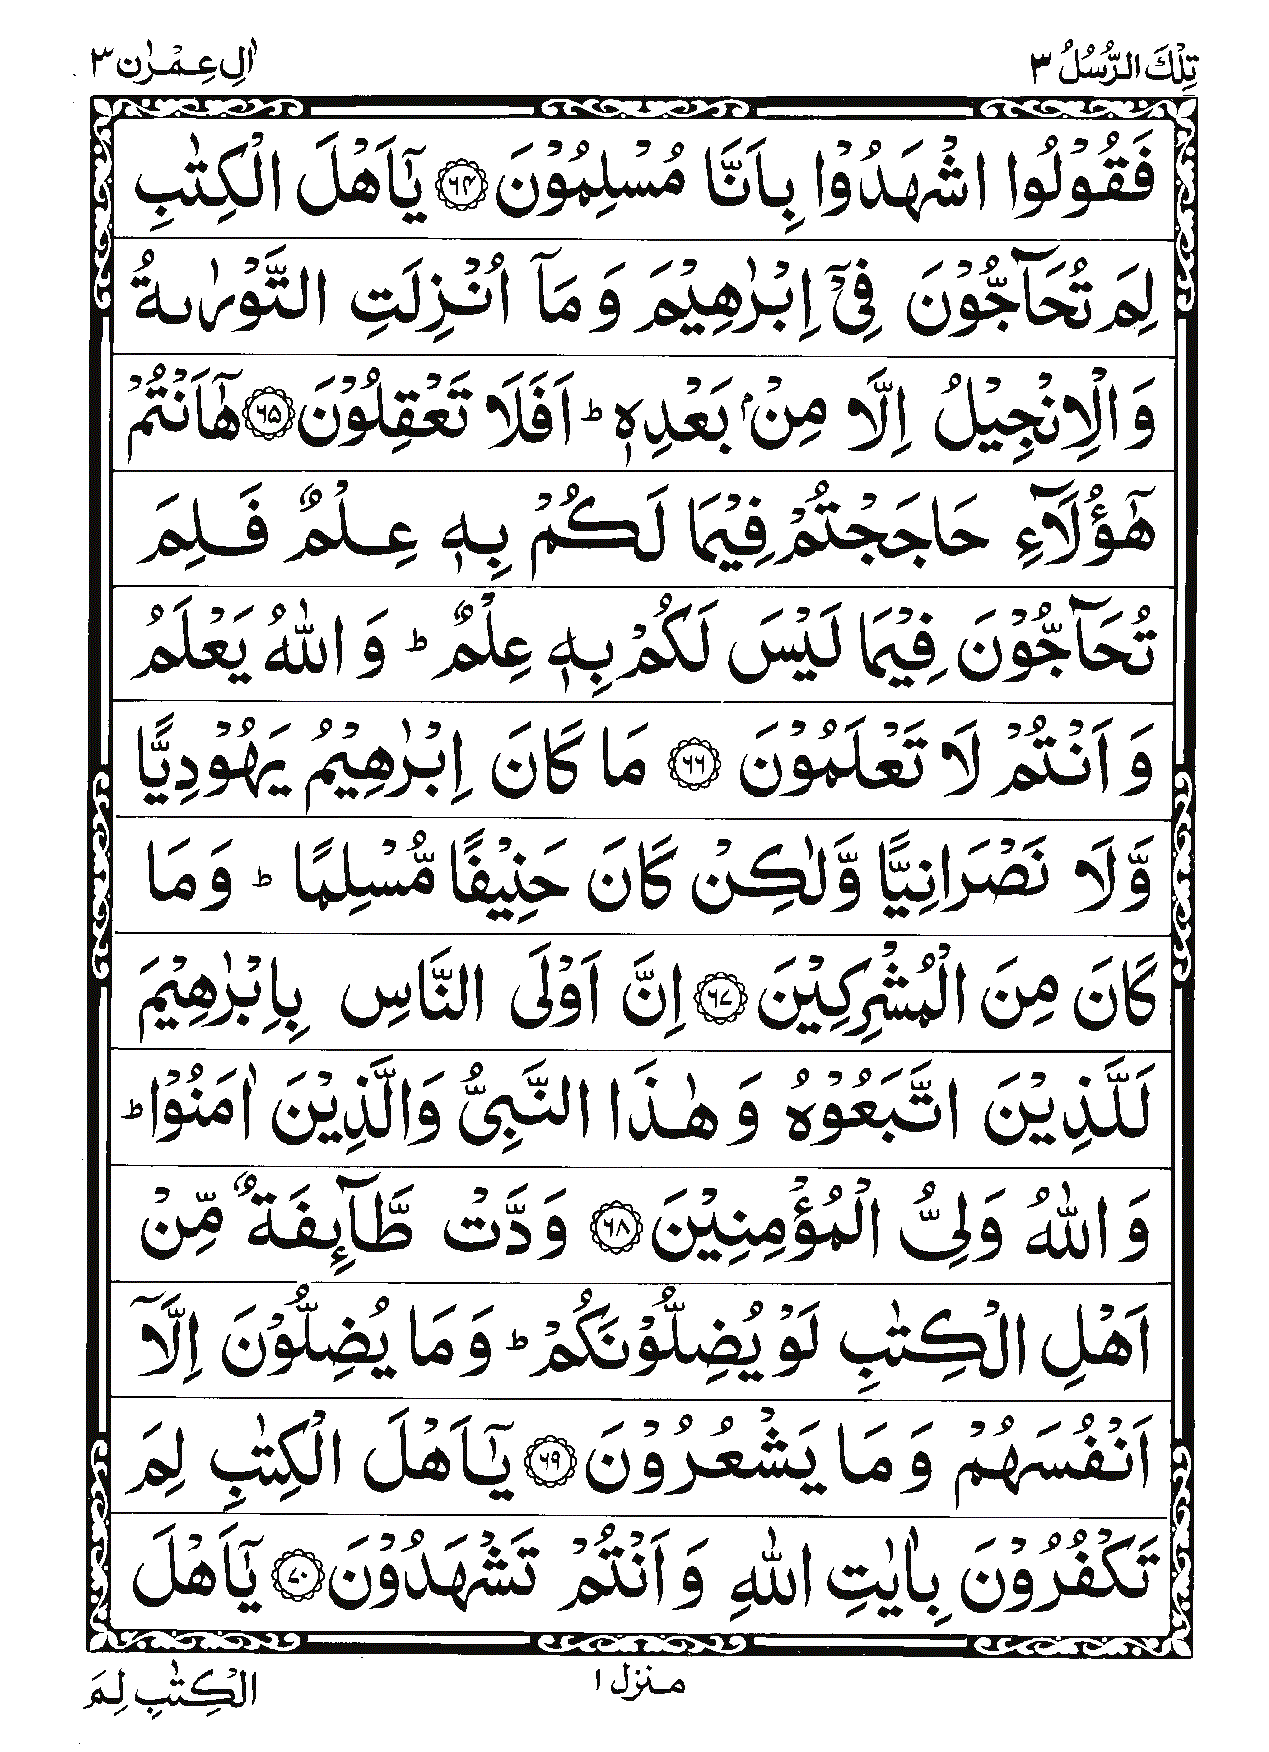 تِلْكَ الرُّسُلُ ٣
اٰلِ عِمْرٰن ٣
فَقُوْلُوا اشْهَدُوْا بِاَنَّا مُسْلِمُوْنَ ﴿۶۴﴾ يٰۤاَهْلَ الْكِتٰبِ
لِمَ تُحَآجُّوْنَ فِيْۤ اِبْرٰهِيْمَ وَ مَاۤ اُنْزِلَتِ التَّوْرٰىةُ
وَ الْاِنْجِيْلُ اِلَّا مِنْۢ بَعْدِهٖ ؕ اَفَلَا تَعْقِلُوْنَ ﴿۶۵﴾ هٰۤاَنْتُمْ
هٰۤؤُلَآءِ حَاجَجْتُمْ فِيْمَا لَكُمْ بِهٖ عِلْمٌ فَلِمَ
تُحَآجُّوْنَ فِيْمَا لَيْسَ لَكُمْ بِهٖ عِلْمٌ ؕ وَ اللّٰهُ يَعْلَمُ
وَ اَنْتُمْ لَا تَعْلَمُوْنَ ﴿۶۶﴾ مَا كَانَ اِبْرٰهِيْمُ يَهُوْدِيًّا
وَّ لَا نَصْرَانِيًّا وَّ لٰكِنْ كَانَ حَنِيْفًا مُّسْلِمًا ؕ وَ مَا
كَانَ مِنَ الْمُشْرِكِيْنَ ﴿۶۷﴾ اِنَّ اَوْلَى النَّاسِ بِاِبْرٰهِيْمَ
لَلَّذِيْنَ اتَّبَعُوْهُ وَ هٰذَا النَّبِيُّ وَ الَّذِيْنَ اٰمَنُوْا ؕ
وَ اللّٰهُ وَلِيُّ الْمُؤْمِنِيْنَ ﴿۶۸﴾ وَدَّتْ طَّآىِٕفَةٌ مِّنْ
اَهْلِ الْكِتٰبِ لَوْ يُضِلُّوْنَكُمْ ؕ وَ مَا يُضِلُّوْنَ اِلَّاۤ
اَنْفُسَهُمْ وَ مَا يَشْعُرُوْنَ ﴿۶۹﴾ يٰۤاَهْلَ الْكِتٰبِ لِمَ
تَكْفُرُوْنَ بِاٰيٰتِ اللّٰهِ وَ اَنْتُمْ تَشْهَدُوْنَ ﴿۷۰﴾ يٰۤاَهْلَ
منزل ١
الْكِتٰبِ لِمَ